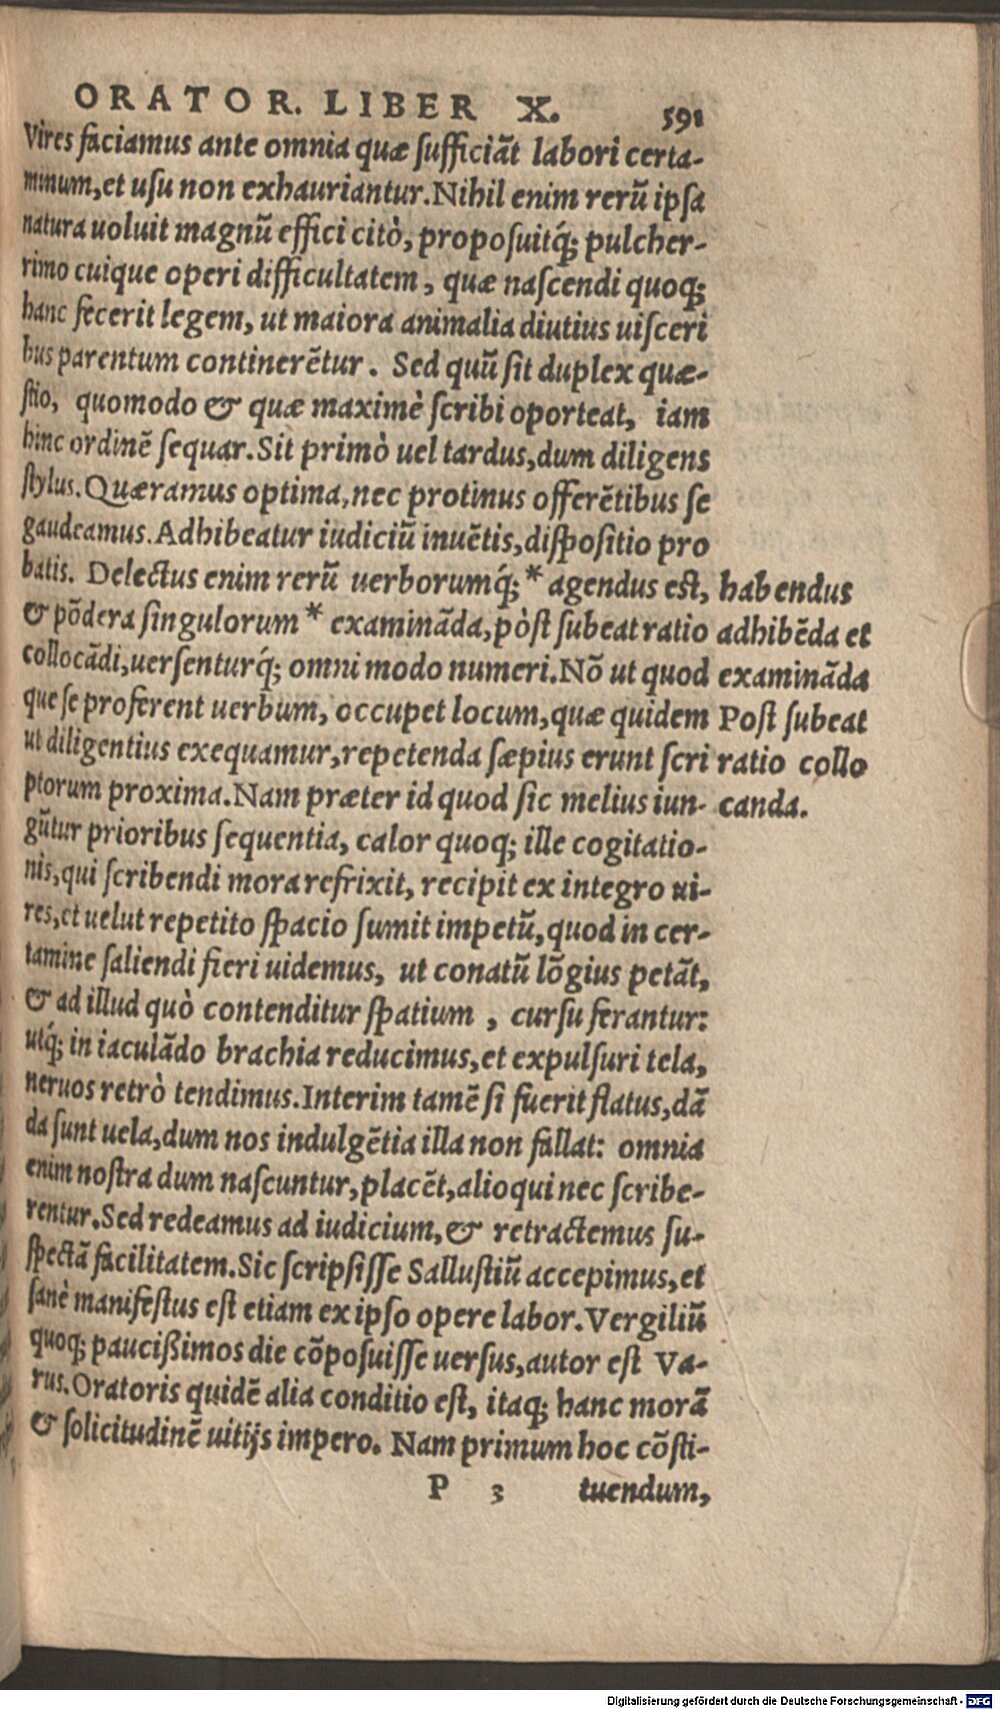 ORATOR. LIBER X. 591
Vires faciamus ante omnia quæ sufficiãt labori certa-
minum, et usu non exhauriantur. Nihil enim rerũ ipsa
natura uoluit magnũ effici citò, proposuitq́; pulcher-
rimo cuique operi difficultatem, quæ nascendi quoq;
hanc fecerit legem, ut maiora animalia diutius uisceri
bus parentum continerẽtur. Sed quũ sit duplex quæ-
stio, quomodo & quæ maximè scribi oporteat, iam
hinc ordinẽ sequar. Sit primò uel tardus, dum diligens
stylus. Quæramus optima, nec protinus offerẽtibus se
gaudeamus. Adhibeatur iudiciũ inuẽtis, dispositio pro
batis. Delectus enim rerũ uerborumq́; * agendus est,
& põdera singulorum * examinãda, pòst subeat ratio
collocãdi, uersenturq́; omni modo numeri. Nõ ut quod
que se proferent uerbum, occupet locum, quæ quidem
ut diligentius exequamur, repetenda sæpius erunt scri
ptorum proxima. Nam præter id quod sic melius iun-
gũtur prioribus sequentia, calor quoq; ille cogitatio-
nis, qui scribendi mora refrixit, recipit ex integro ui-
res, et uelut repetito spacio sumit impetũ, quod in cer-
tamine saliendi fieri uidemus, ut conatũ lõgius petãt,
& ad illud quò contenditur spatium, cursu ferantur:
utq́; in iaculãdo brachia reducimus, et expulsuri tela,
neruos retrò tendimus. Interim tamẽ si fuerit flatus, dã
da sunt uela, dum nos indulgẽtia illa non fallat: omnia
enim nostra dum nascuntur, placẽt, alioqui nec scribe-
rentur. Sed redeamus ad iudicium, & retractemus su-
spectã facilitatem. Sic scripsisse Sallustiũ accepimus, et
sanè manifestus est etiam ex ipso opere labor. Vergiliũ
quoq; paucißimos die cõposuisse uersus, autor est Va-
rus. Oratoris quidẽ alia conditio est, itaq; hanc morã
& solicitudinẽ uitijs impero. Nam primum hoc cõsti-
P 3 tuendum,
habendus
adhibẽda et
examinãda
Post subeat
ratio collo
canda.
Digitalisierung gefördert durch die Deutsche Forschungsgemeinschaft - DFG